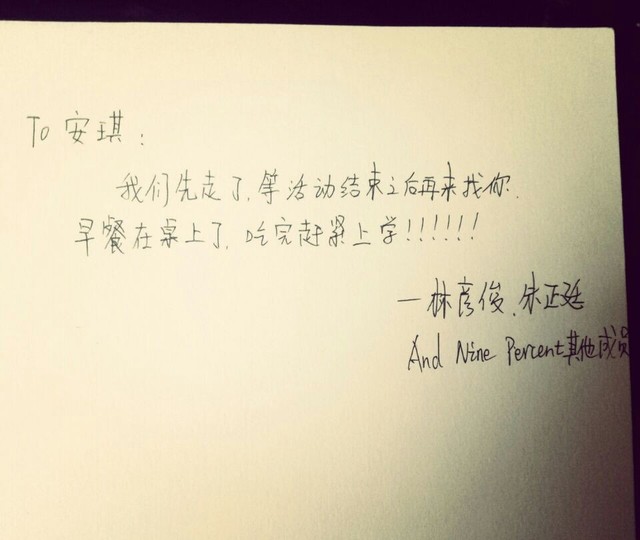 To 安琪:
我们先走了,等活动结束之后再来找你.
早餐在桌上了,吃完赶紧上学!!!!!!
—林彦俊、朱正廷
And Nine Percent其他成员